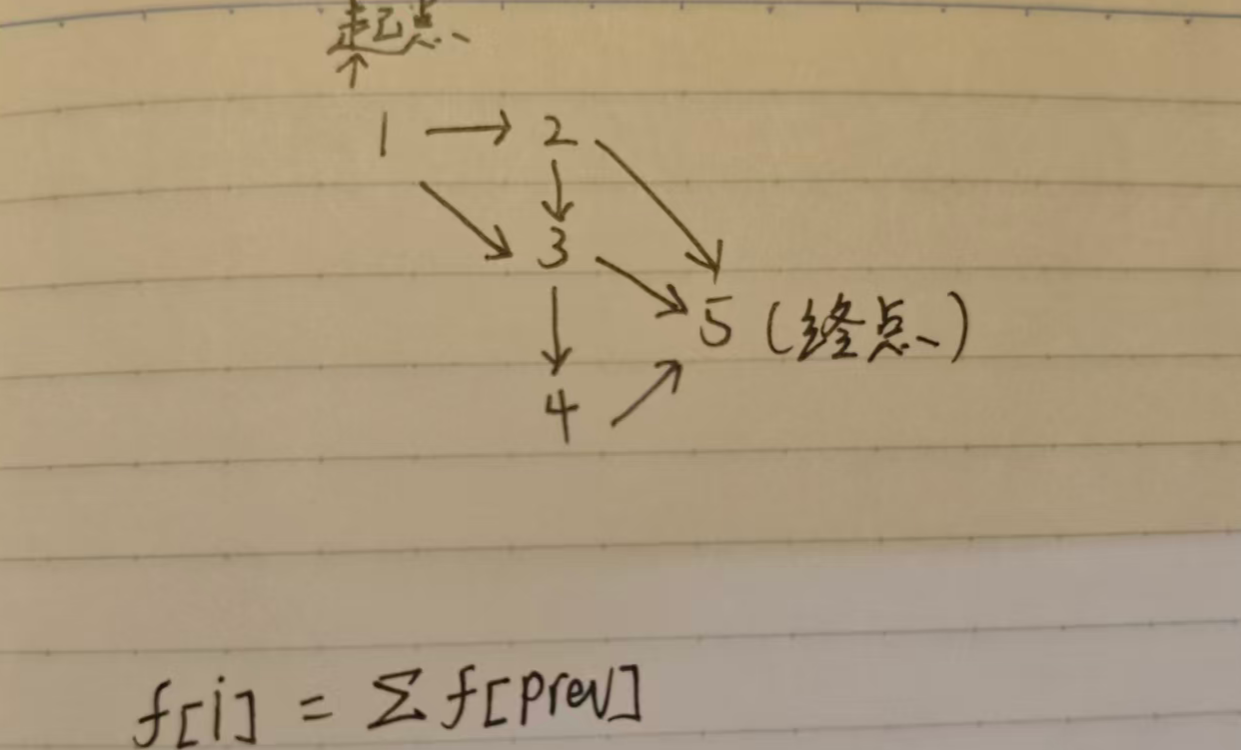 起点
↑
1 → 2
3
5 (终点)
4
f[i] = Σ f[prev]